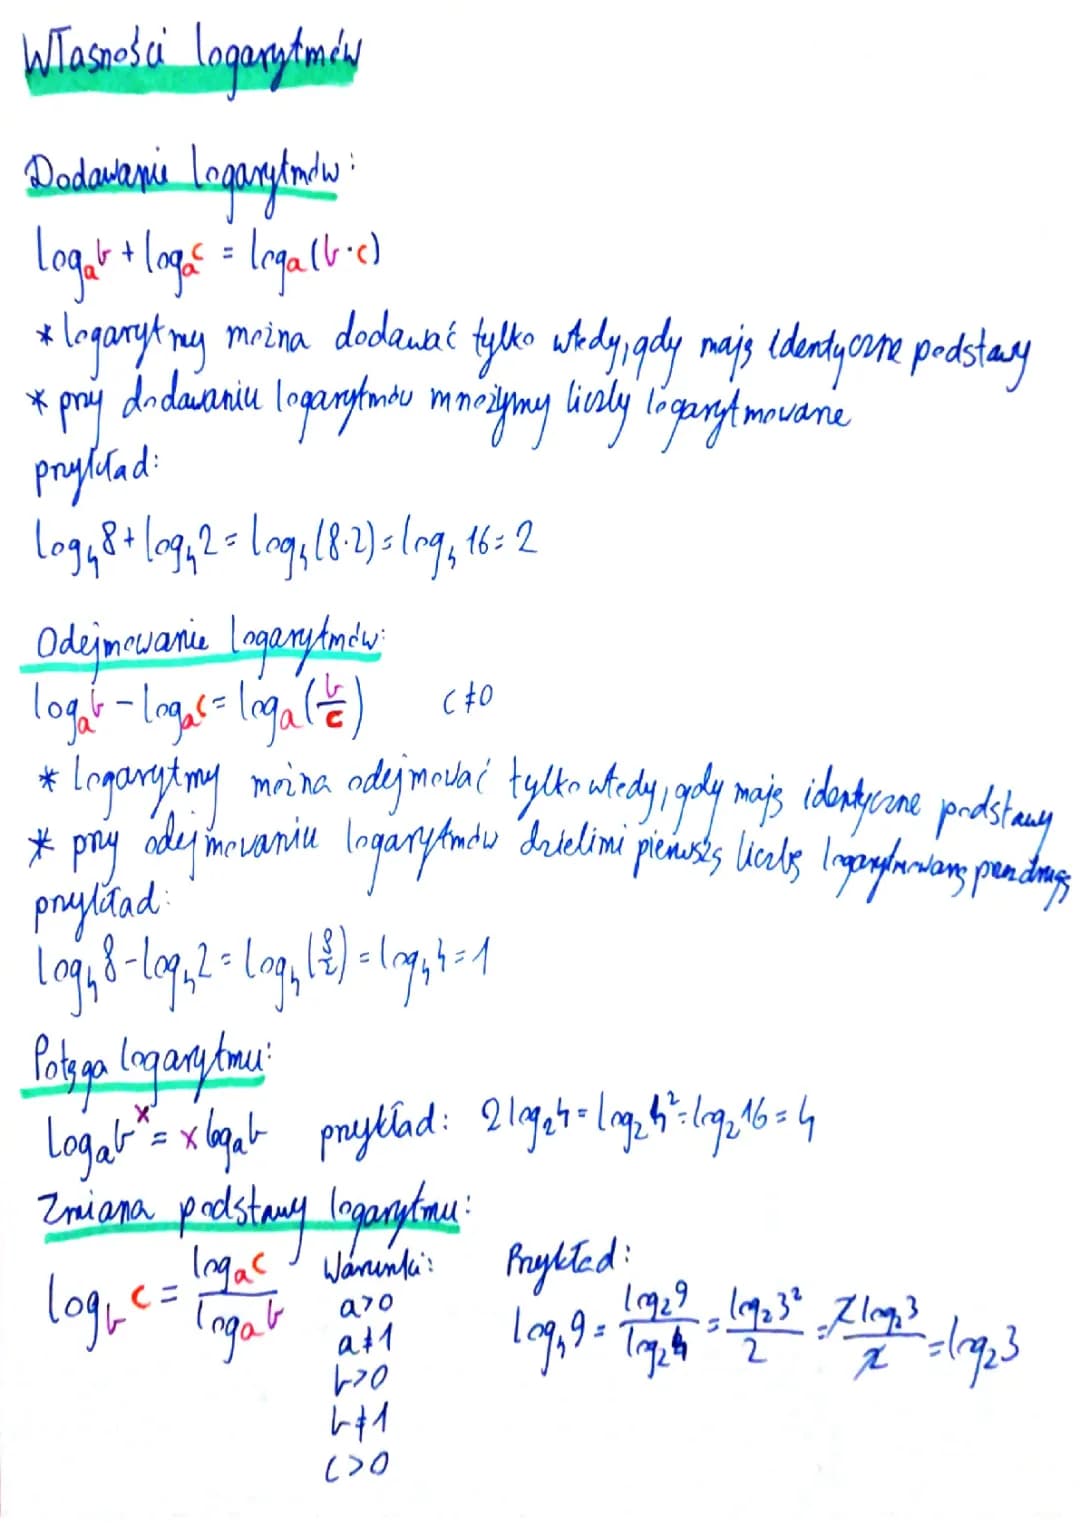 Własności logarytmów
Dodawanie logarytmów:
logₐb + logₐc = logₐ(b·c)
* logarytmy można dodawać tylko wtedy, gdy mają identyczne podstawy
* przy dodawaniu logarytmów mnożymy liczby logarytmowane
przykład:
log₄8 + log₄2 = log₄(8·2) = log₄16 = 2
Odejmowanie logarytmów:
logₐb - logₐc = logₐ(b/c) c ≠ 0
* logarytmy można odejmować tylko wtedy, gdy mają identyczne podstawy
* przy odejmowaniu logarytmów dzielimi pierwszą liczbę logarytmowaną przez drugą
przykład:
log₄8 - log₄2 = log₄(8/2) = log₄4 = 1
Potęga logarytmu:
logₐbˣ = x logₐb przykład: 2log₂4 = log₂4² = log₂16 = 4
Zmiana podstawy logarytmu:
log_b c = logₐc / logₐb Warunki: Przykład:
a>0 log₄9 = log₂9 / log₂4 = log₂3² / 2 = 2log₂3 / 2 = log₂3
a≠1
b>0
b≠1
c>0